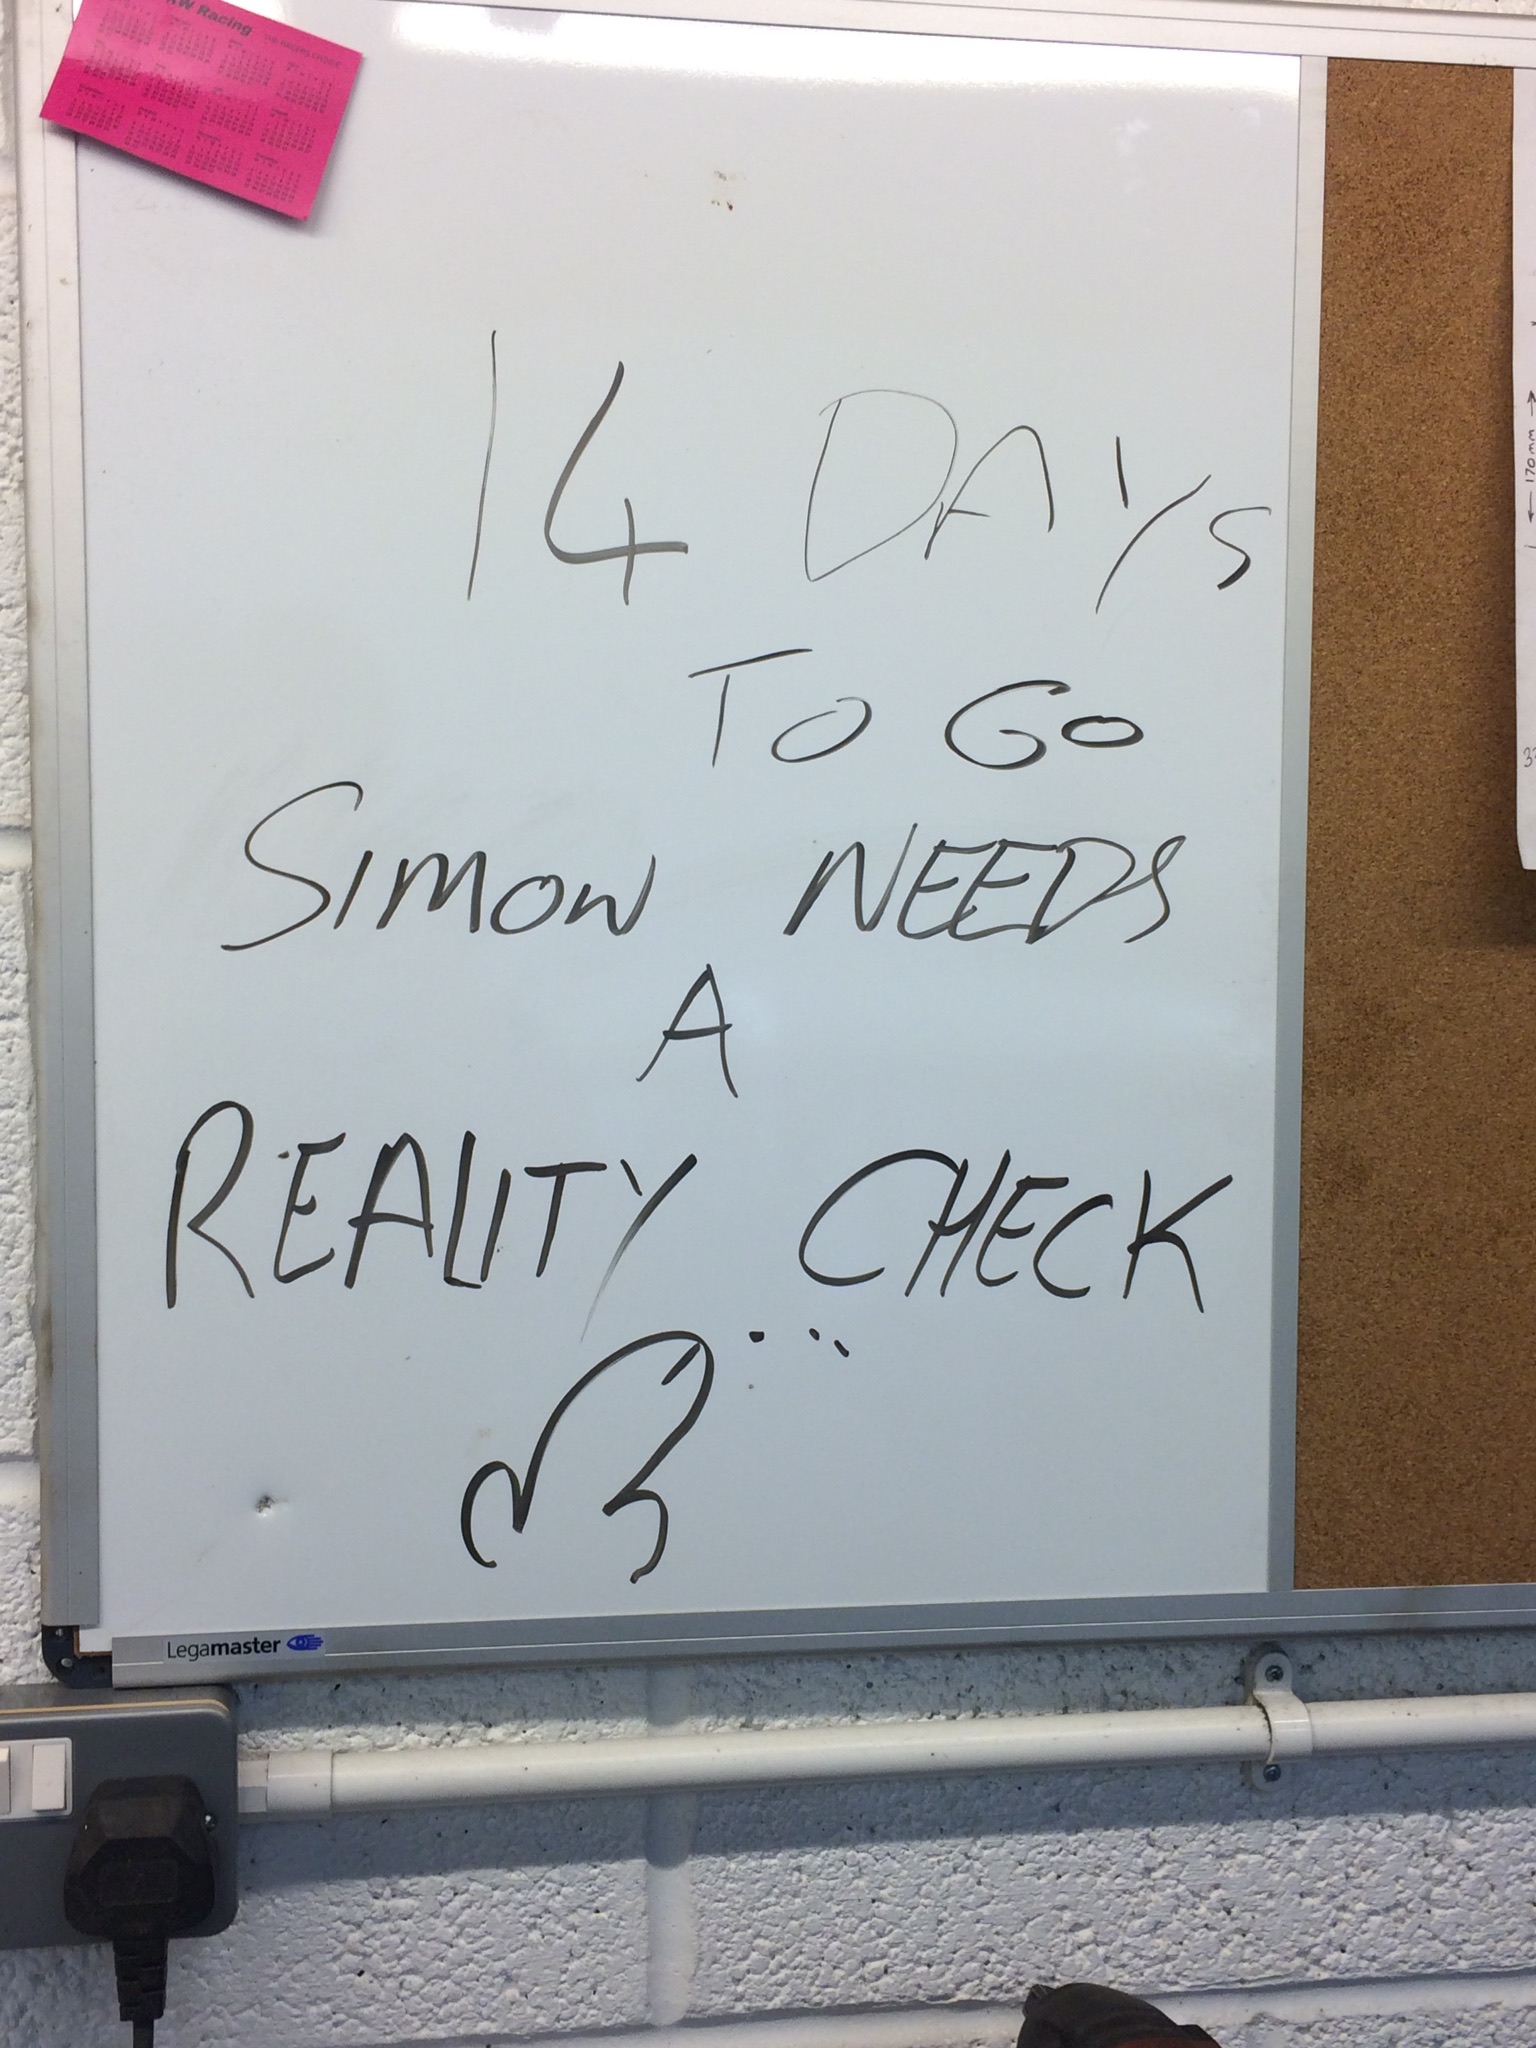 RW Racing
14 DAYS
TO GO
SIMON NEEDS
A
REALITY CHECK
Legamaster
170mm